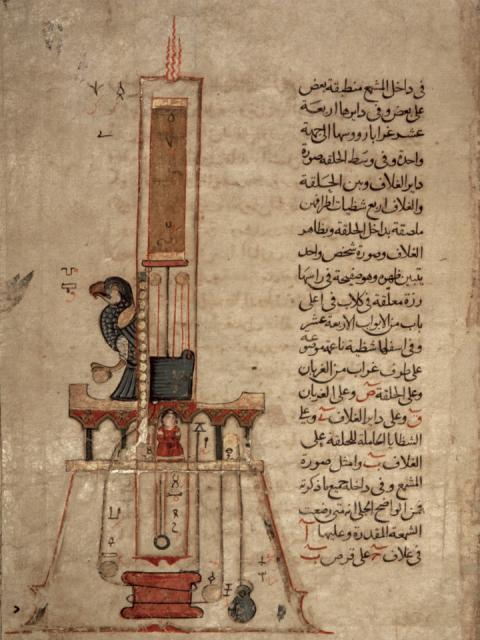 في داخل المشمع منطبقة بعض
على بعض وفي دايرها اربعة
عشر غرابا روسها الى جهة
واحدة وفي وسط الحلقة صورة
داير الغلاف وبين الحلقة
والغلاف اربع شظيات اطرافهن
ملصقة بداخل الحلقة وبظاهر
الغلاف وصورة شخص واحد
يتبين ظهره وهو صفيحة في راسها
رزة معلقة في كلاب في اعلى
باب من الابواب الاربعة عشر
وفي اسفلها شظية ناعمة موضوعة
على طرف غراب من الغربان
وعلى الحلقة ص وعلى الغربان
ق وعلى داير الغلاف وعلى
الشظايا الحاملة للحلقة على
الغلاف وامثل صورة
المشمع وفي داخله جميع ما ذكرته
فمن الواضح الجلي انه متى وضعت
الشمعة المقدرة وعليها ا
في غلاف على قرص